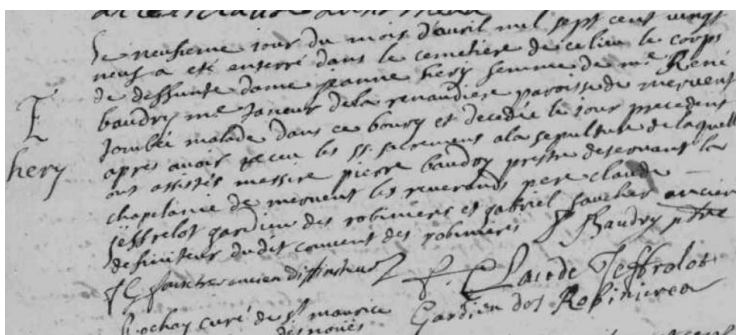 Le neufieme jour du mois d'avril mil sept cent vingt
neuf a eté enterré dans le cemetiere de ce lieu le coorps
de deffunte dame jeanne hery femme de me René
baudry me taneur de la renaudiere paroisse de mervent
tombée malade dans ce bourg et decedée le jour precedent
apres avoir receu les sts sacrements a la sepulture de laquelle
ont assistés messire pierre baudry prestre deservant la
chapelanie de mervent les reverends pere claude
jeffrelot gardien des robiniers et gabriel faucher ancien
definiteur dudit couvent des robiniers P Baudry ptre
hery
f G faucher ancien diffiniteur f. Claude Jeffrelot
Rochay curé de st maurice Gardien des Robinieres
des noües